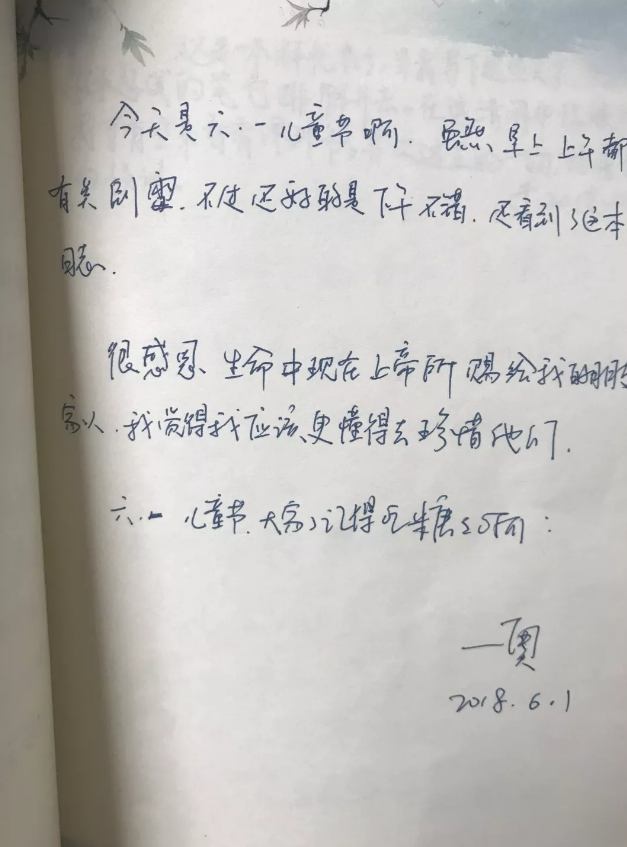 今天是六·一儿童节啊. 虽然、早上上午都
有关 雷. 不过还好的是下午不错. 还看到了这本
日志.
很感恩、生命中现在上帝所赐给我的朋
家人. 我觉得我应该、更懂得去珍惜他们.
六·一 儿童节. 大家记得吃糖
一贾
2018.6.1